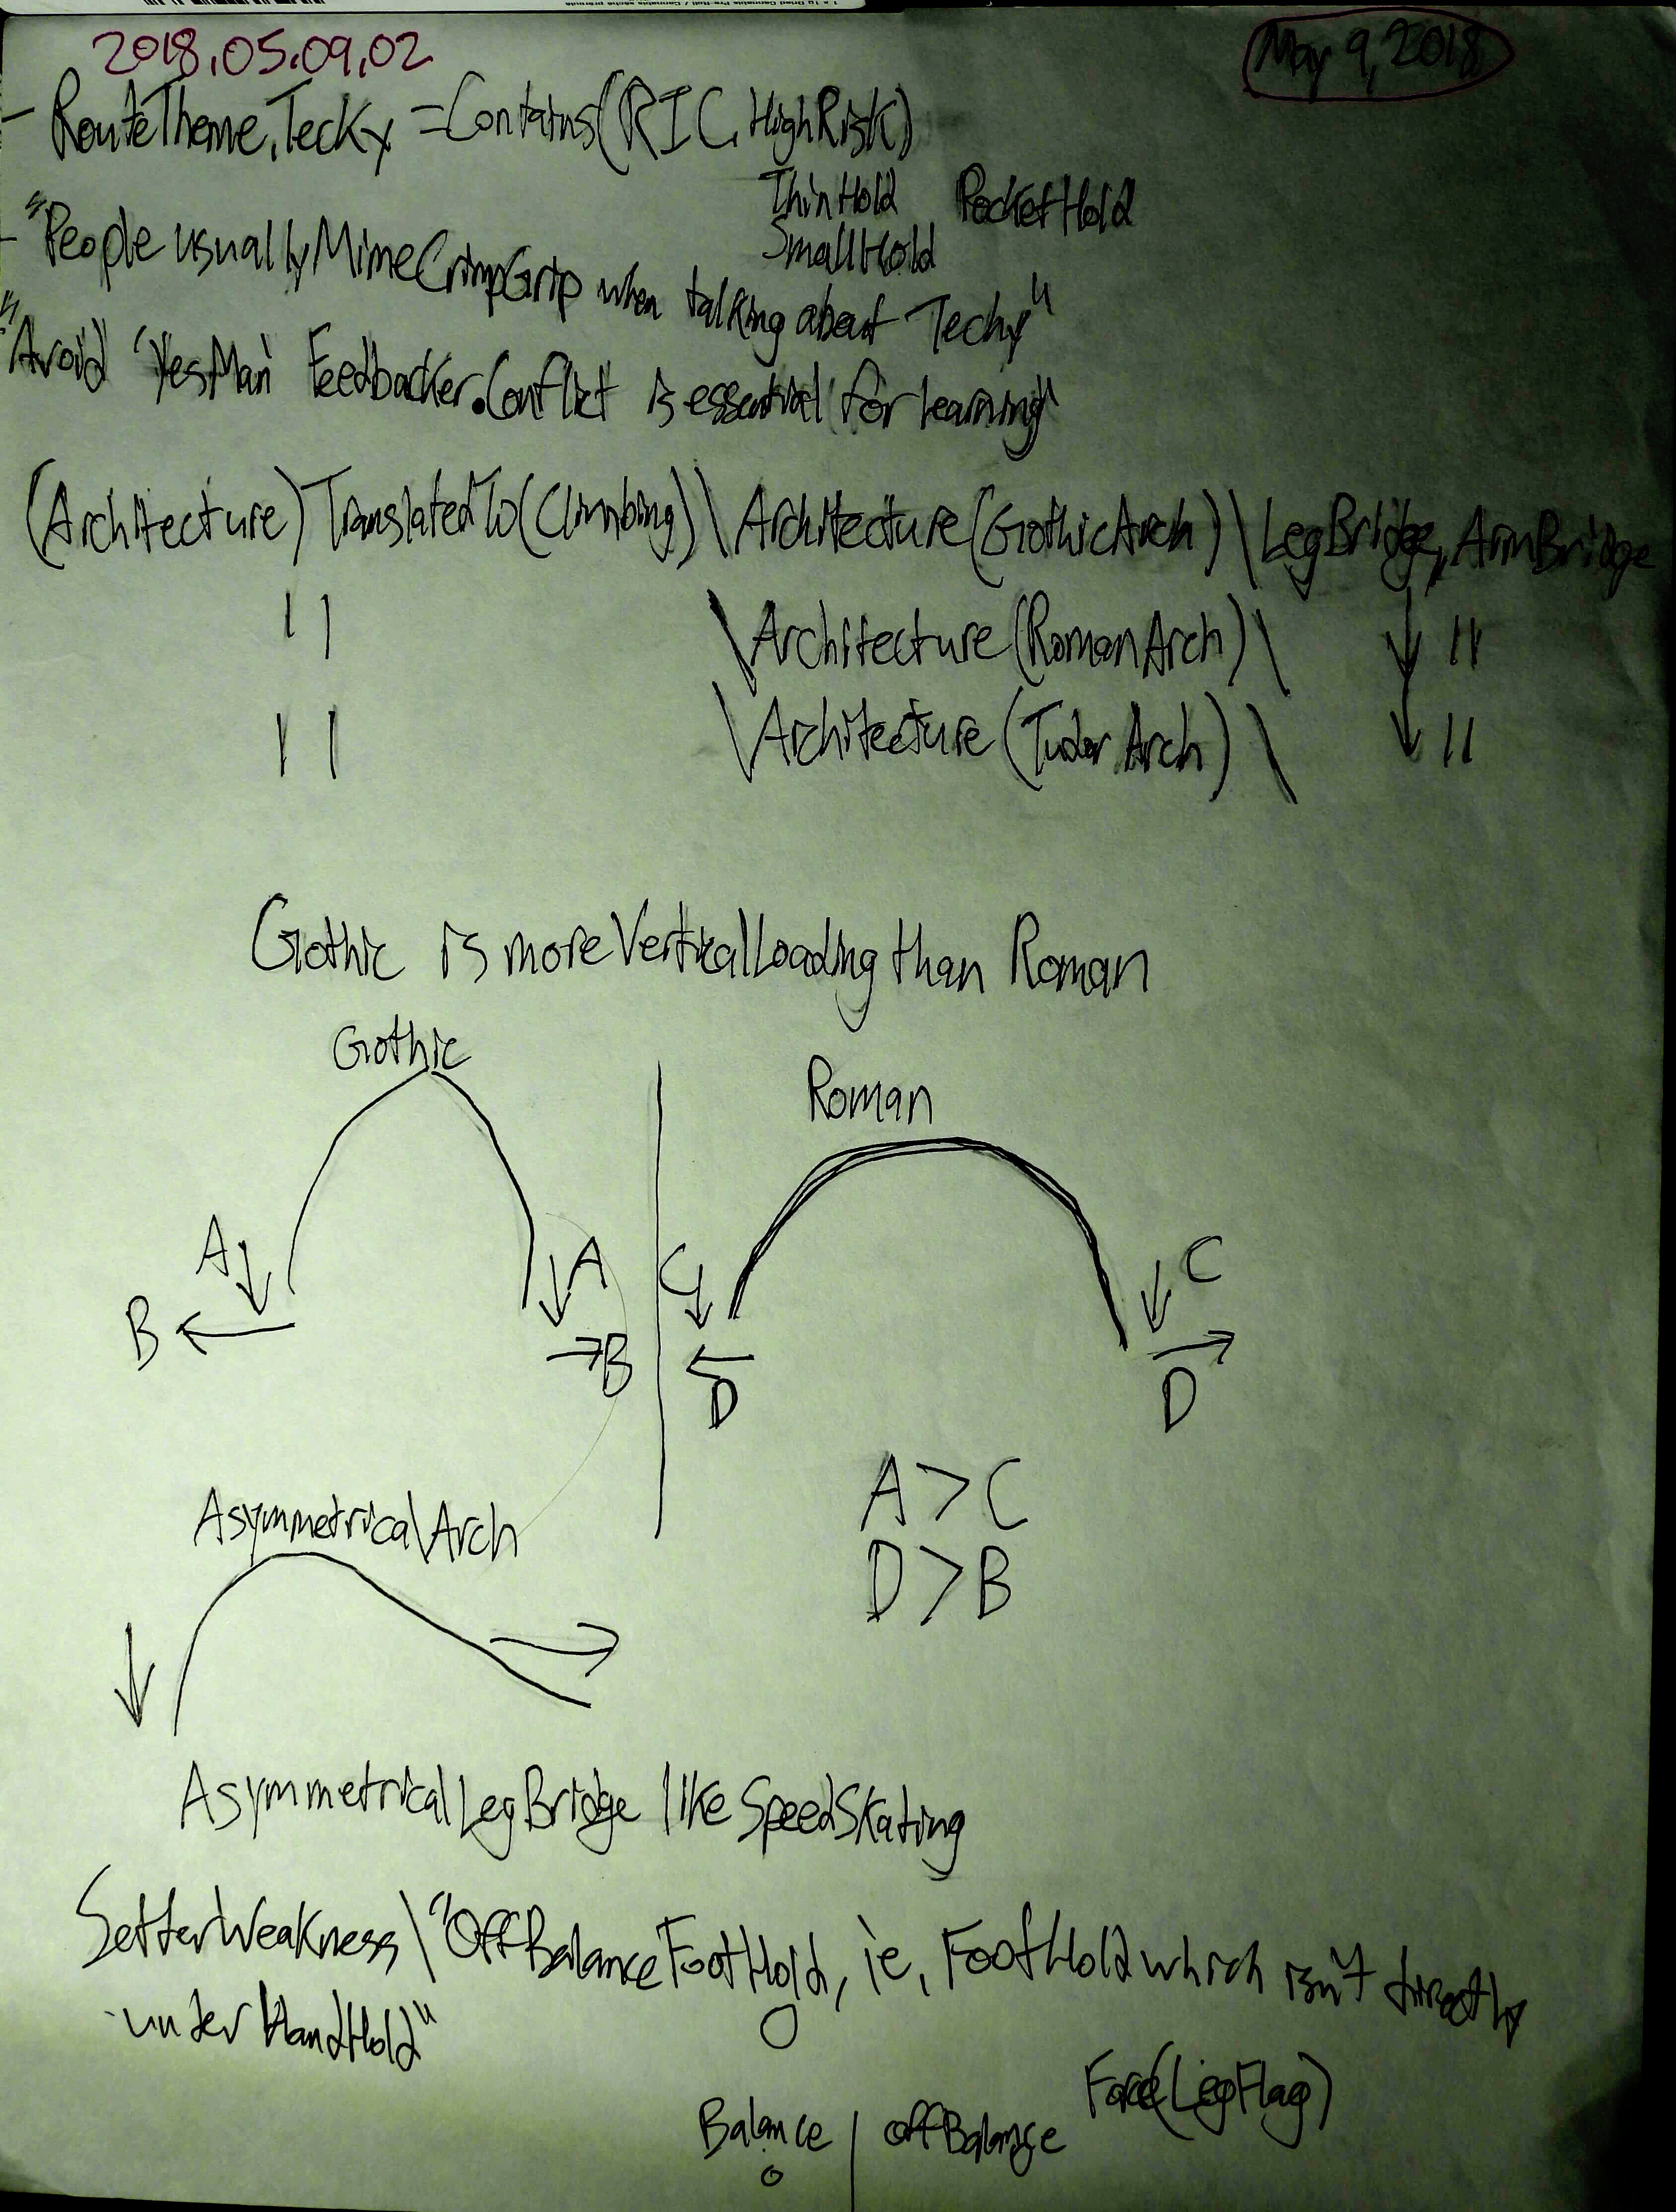 2018.05.09.02
May 9, 2018
- RouteTheme.Techy = Contains(RIC.HighRisk)
ThinHold PocketHold
SmallHold
- "People usually MimeCrimpGrip when talking about Techy"
"Avoid 'YesMan' Feedbacker. Conflict is essential for learning"
(Architecture)TranslatedTo(Climbing)\Architecture(GothicArch)\LegBridge, ArmBridge
" \Architecture(RomanArch)\ ↓ "
" \Architecture(TudorArch)\ ↓ "
Gothic is more VerticalLoading than Roman
Gothic
Roman
A A C C
B B D D
A > C
D > B
AsymmetricalArch
AsymmetricalLegBridge like SpeedSkating
SetterWeakness\"OffBalanceFootHold, ie, FootHold which isn't directly
under HandHold"
Balance | offBalance Force(LegFlag)